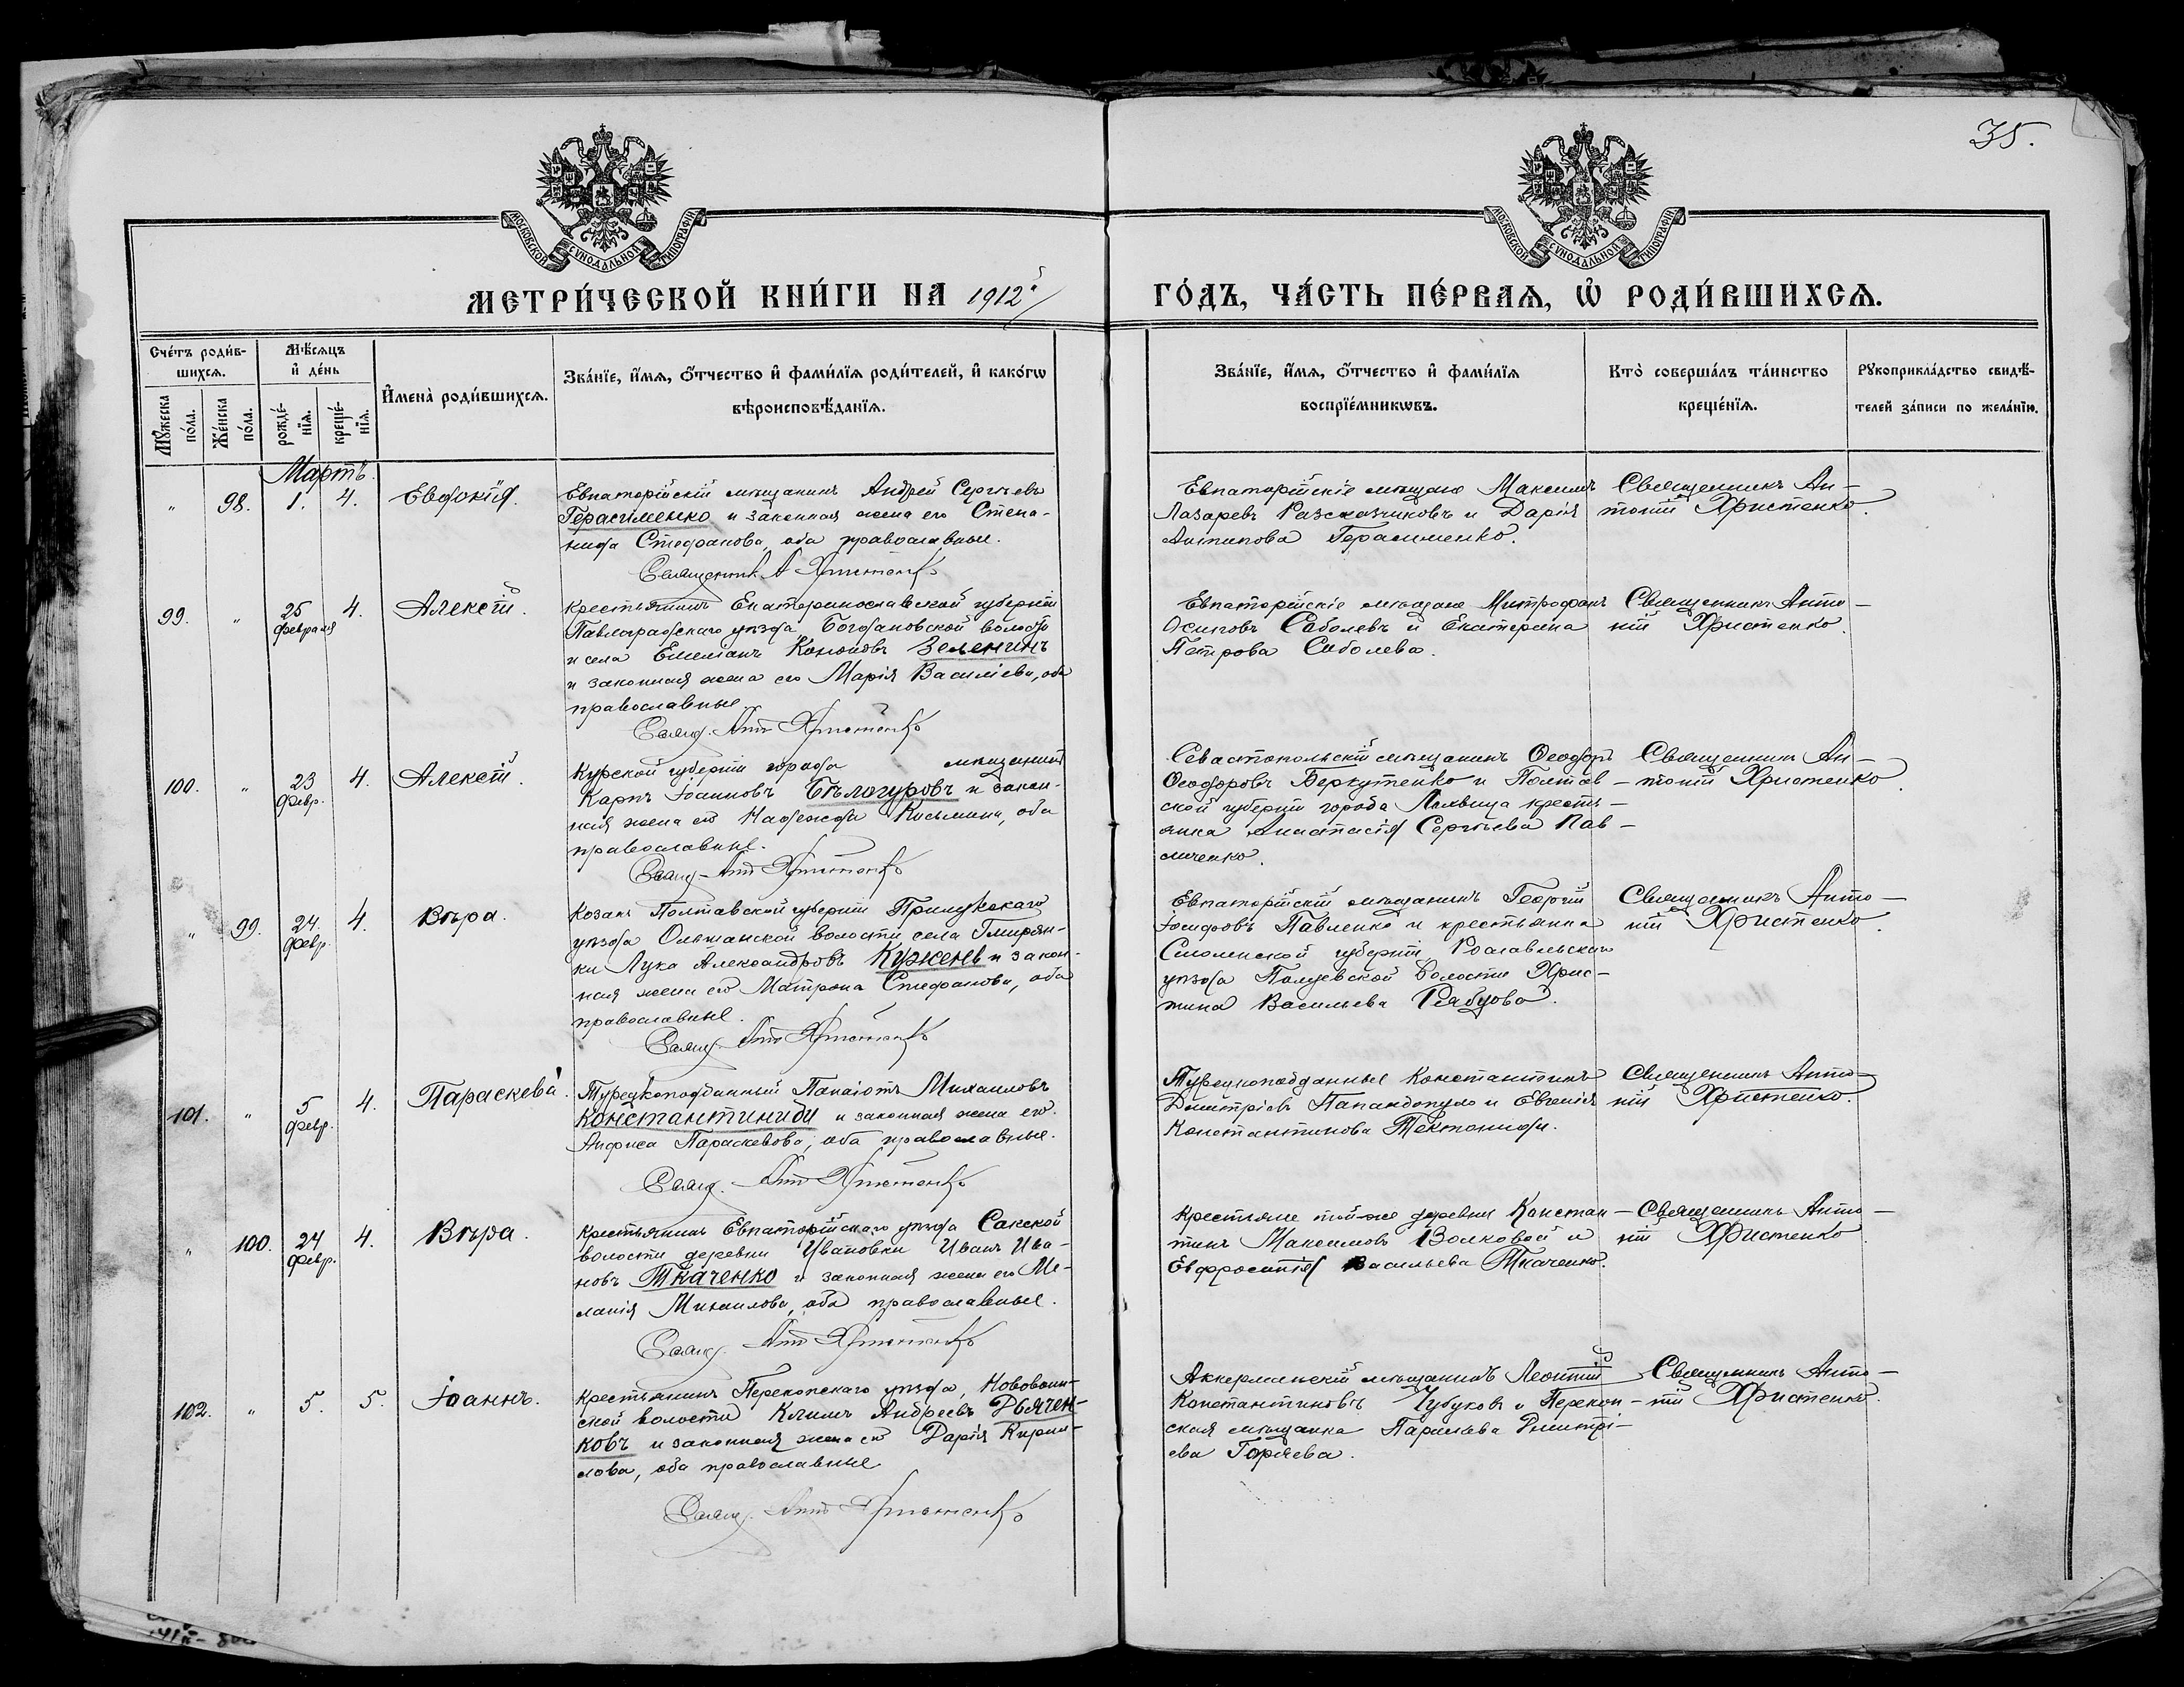 35.
МОСКОВСКОЙ СѴНОДАЛЬНОЙ ТИПОГРАФІИ
МОСКОВСКОЙ СѴНОДАЛЬНОЙ ТИПОГРАФІИ
МЕТРИ́ЧЕСКОЙ КНИ́ГИ НА 1912й
ГО́ДЪ, ЧА́СТЬ ПЕ́РВАѦ, Ѡ҆ РОДИ́ВШИХСѦ.
Сче́тъ роди́в-
шихсѧ.
Мꙋ́жеска по́ла.
Же́нска по́ла.
Мѣ́сѧцъ
и҆ де́нь
рожде́-
нїѧ.
креще́-
нїѧ.
И҆мена̀ роди́вшихсѧ.
Зва́нїе, и҆́мѧ, ѻ҆́тчество и҆ фами́лїѧ роди́телей, и҆ како́гѡ
вѣроисповѣ́данїѧ.
Зва́нїе, и҆́мѧ, ѻ҆́тчество и҆ фами́лїѧ
воспрїе́мникѡвъ.
Кто̀ соверша́лъ та́инство
креще́нїѧ.
Рꙋкоприкла́дство свидѣ́-
телей за́писи по жела́нїю.
Мартъ.
" 98. 1. 4. Евдокія
Евпаторійскій мѣщанинъ Андрей Сергѣевъ
Герасименко и законная жена его Степа-
нида Стефанова, оба православные.
Священник А Христенко
Евпаторійскіе мѣщане Максимъ
Лазаревъ Разсказчиковъ и Дарія
Антипова Герасименко.
Священникъ Ан-
тоній Христенко.
99. " 25 февраля 4. Алексій.
Крестьянинъ Екатеринославской губерніи
Павлоградскаго уѣзда Богдановской волости
и села Емеліанъ Кононовъ Зеленинъ
и законная жена его Марія Василіева, оба
православные
Свящ. Ант Христенко
Евпаторійскіе мѣщане Митрофанъ
Осиповъ Соболевъ и Екатерина
Петрова Соболева.
Священникъ Анто-
ній Христенко.
100. " 23 Февр. 4. Алексій.
Курской губерніи города мѣщанинъ
Карпъ Іоанновъ Бѣлогуровъ и закон-
ная жена его Надежда Косьмина, оба
православные.
Свящ. Ант Христенко
Севастопольскій мѣщанинъ Ѳеодоръ
Ѳеодоровъ Беркутенко и Полтав-
ской губерніи города Лохвица кресть-
янка Анастасія Сергѣева Пав-
личенко.
Священникъ Ан-
тоній Христенко.
" 99. 24 Февр. 4. Вѣра.
Козакъ Полтавской губерніи Прилукскаго
уѣзда Ольшанской волости села Гмирян-
ки Лука Александровъ Кужень и закон-
ная жена его Матрона Стефанова, оба
православные.
Свящ. Ант Христенко
Евпаторійскій мѣщанинъ Георгій
Іосифовъ Павленко и крестьянка
Смоленской губерніи Рославльскаго
уѣзда Полуевской волости Хрис-
тина Васильева Рябцова.
Священникъ Анто-
ній Христенко.
101. " 5 Февр. 4. Параскева.
Турецкоподданный Панаіотъ Михаиловъ
Константиниди и законная жена его
Анфиса Параскевова, оба православные.
Свящ. Ант Христенко
Турецкоподданные Константинъ
Димитріевъ Папандопуло и Евгенія
Константинова Тектониди.
Священникъ Анто-
ній Христенко.
" 100. 24 Февр. 4. Вѣра.
Крестьянинъ Евпаторійскаго уѣзда Сакской
волости деревни Ивановки Иванъ Ива-
новъ Ткаченко и законная жена его Ме-
ланія Михаилова, оба православные.
Свящ. Ант Христенко
Крестьяне той-же деревни Констан-
тинъ Максимовъ Волковой и
Евфросинія Васильева Ткаченко.
Священникъ Анто-
ній Христенко.
102. " 5. 5. Іоаннъ.
Крестьянинъ Перекопскаго уѣзда,
ской волости Климъ Андреевъ Дьячен-
ковъ и законная жена его Дарія Кирил-
лова, оба православные
Свящ. Ант Христенко
Аккерманскій мѣщанинъ Леонтій
Константиновъ Чубуковъ и Перекоп-
ская мѣщанка Димитрі-
ева Горяева.
Священникъ Анто-
ній Христенко.